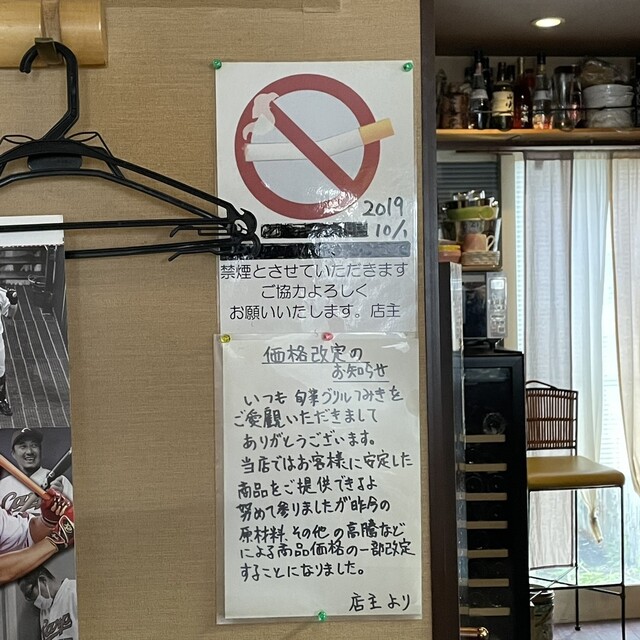 2019
10/1
禁煙とさせていただきます
ご協力よろしく
お願いいたします。店主
価格改定の
お知らせ
いつも 旬菜グリルつみきを
ご愛顧いただきまして
ありがとうございます。
当店ではお客様に安定した
商品をご提供できるよ
努めて参りましたが昨今の
原材料、その他の高騰などに
による商品価格の一部改定
することになりました。
店主より